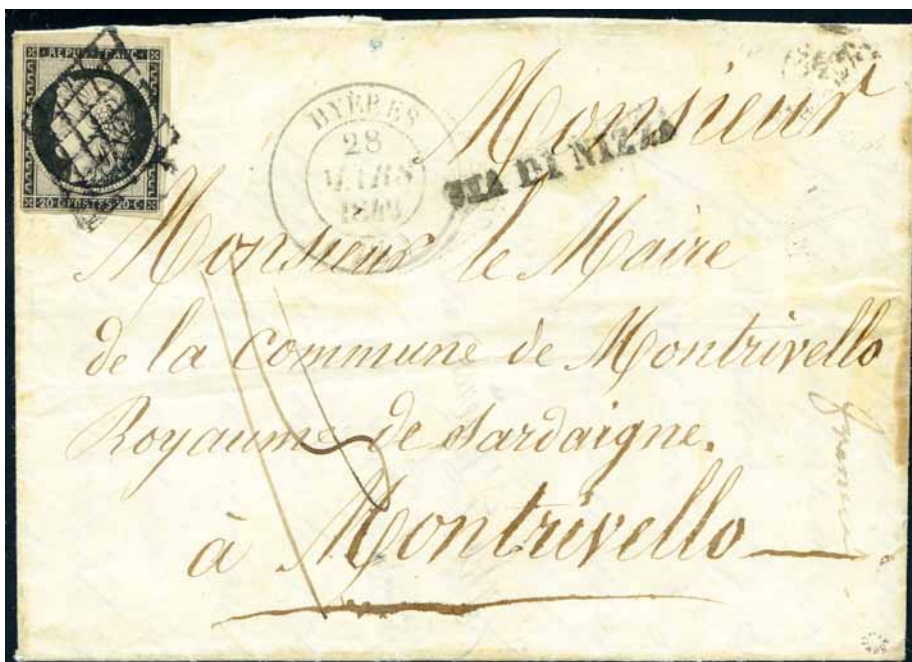 REPUB FRANC
20 C POSTES 20 C
HYÈRES
28
MARS
VIA DI NIZZA
Monsieur
Monsieur le Maire
de la Commune de Montrivello
Royaume de Sardaigne.
à Montrivello